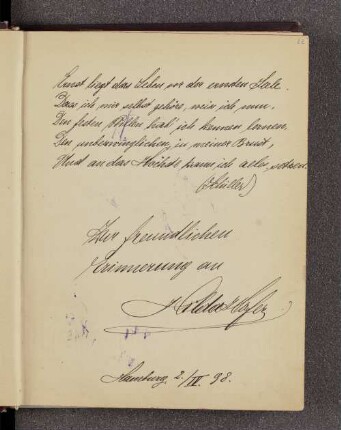 Ernst liegt das Leben vor der ernsten Seele.
Dass ich mir selbst gehöre, weiss ich nun.
Den festen Willen hab' ich kennen lernen,
Den unbezwinglichen, in meiner Brust,
Und an das Höchste kann ich alles setzen.
(Schiller)
Zur freundlichen
Erinnerung an
Hilda Hofer
Hamburg 2/IV 98.